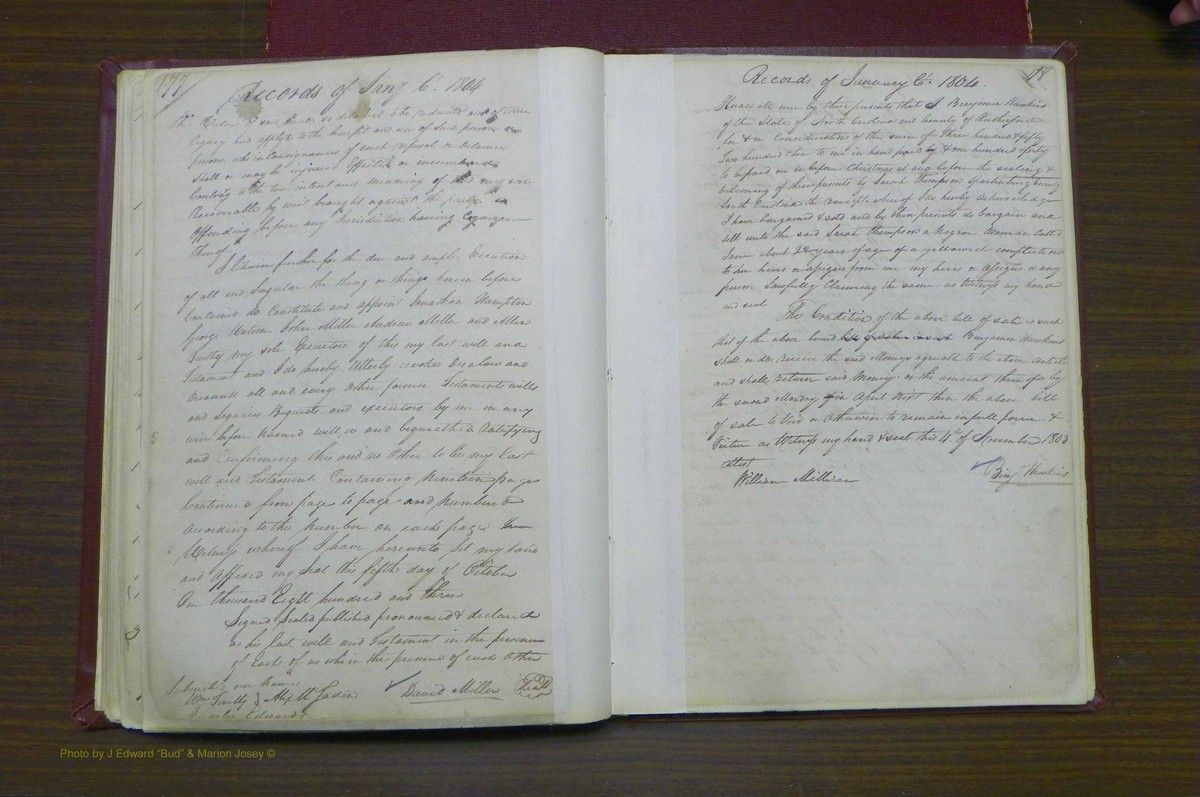 177
Records of Jany Ct. 1804
legacy and apply to the benefit and use of such person or
persons who in consequence of such refusal or detainer
shall or may be injured affected or incumbered
Contrary to the true intent and meaning of this my will
Recoverable by writ brought against the party
offending before any Jurisdiction having Cognizance
thereof
I Likewise further for the due and ample Execution
of all and Singular the thing or things herein before
Contained do Constitute and appoint Jonathan Hampton
George Watson John Miller Andrew Miller and Allen
Twitty my sole Executors of this my last will and
Testament and I do hereby Utterly revoke Disalow and
Disannul all and every other former Testaments wills
and Legacies Bequests and executors by me in any
wise before Named will,d and bequeathed Ratifying
and Confirming this and no Other to be my last
will and Testament Containing Nineteen pages
Continued from page to page and Numbered
according to the Number on each page In
Witness whereof I have hereunto Set my hand
and Affixed my Seal this fifth day of October
One thousand Eight hundred and three
Signed Sealed published pronounced & declared
as his last will and Testament in the presence
of Each of us who in the presence of each Other
Subscribed our Names
Wm Twitty } David Miller Seal
Charles Edwards
178
Records of January Ct. 1804.
Know all men by these presents that I Benjamin Hawkins
of the State of North Carolina and County of Rutherford
for & in Consideration of the sum of three hundred & fifty
two hundred & ten to me in hand paid by & one hundred & forty
to be paid on or before Christmas at and before the sealing &
delivering of these presents by Sarah Thompson Spartanburg County
South Carolina the receipt whereof I do hereby acknowledge
I have bargained & sold and by these presents do bargain and
sell unto the said Sarah Thompson a Negro Woman Called
Jane about 24 years of age of a yellowish complection
to her heirs or assigns from me my heirs or assigns or any
person Lawfully Claiming the same as Witness my hand
and seal
The Condition of the above bill of sale is such
that if the above bound Benjamin Hawkins
shall receive the said Moneys agreeable to the above
and shall Return said Money or the amount thereof by
the second Monday in April Next then the above bill
of sale to Void or Otherwise to remain in full force &
Virtue as Witness my hand & seal this 4th of November 1803
Attest
William Millican Binj Hawkins
Photo by J Edward "Bud" & Marion Josey ©